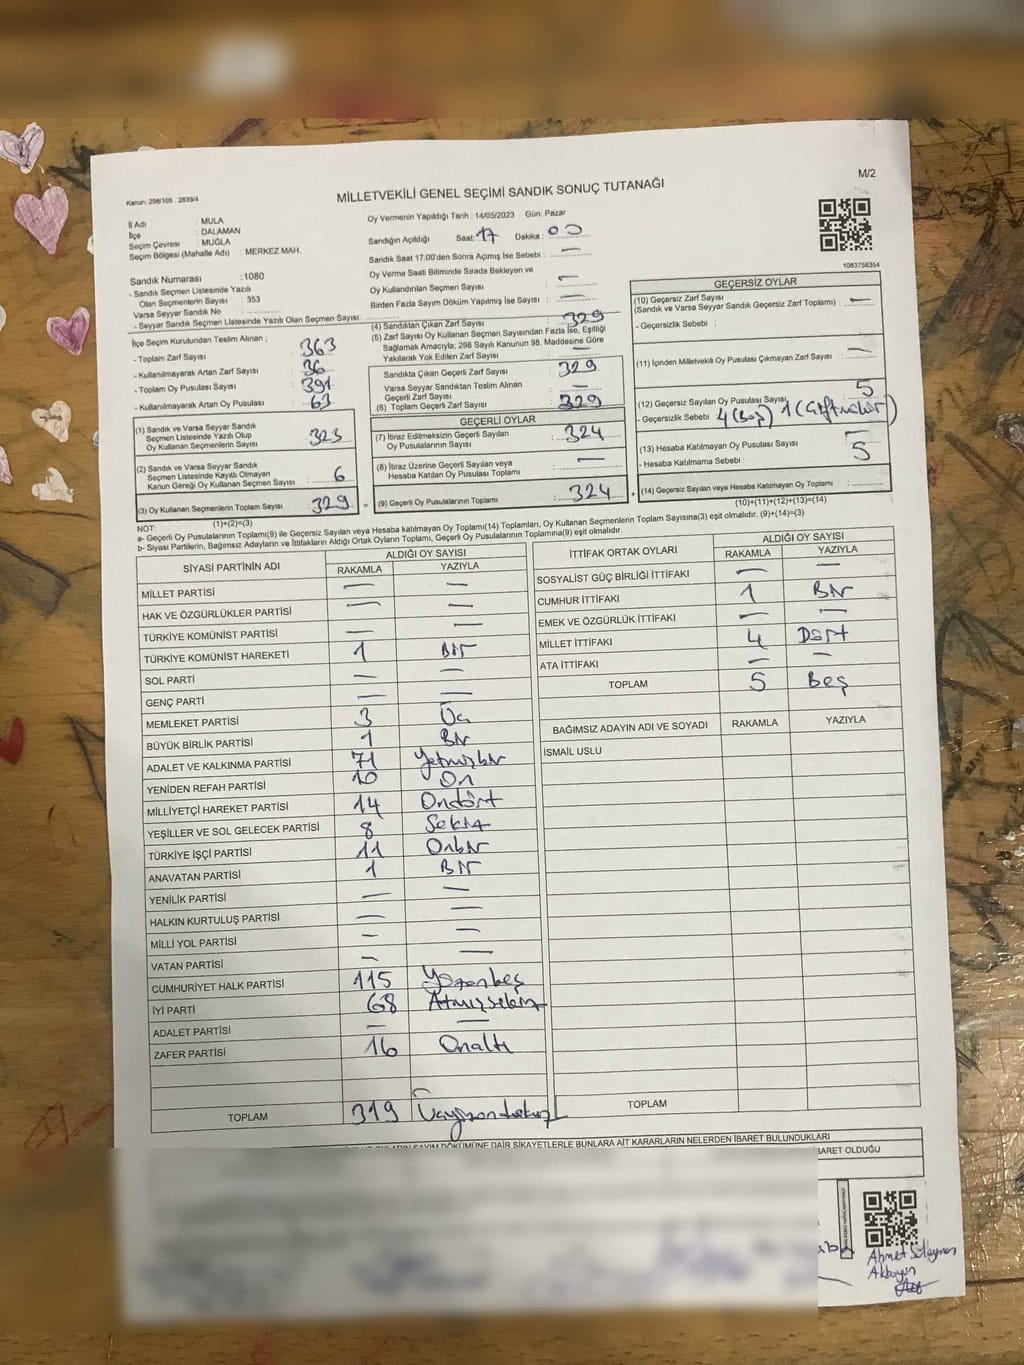 M/2
Kanun: 298/105 , 2839/4
MİLLETVEKİLİ GENEL SEÇİMİ SANDIK SONUÇ TUTANAĞI
İl Adı : MULA
İlçe : DALAMAN
Seçim Çevresi : MUĞLA
Seçim Bölgesi (Mahalle Adı) : MERKEZ MAH.
Oy Vermenin Yapıldığı Tarih : 14/05/2023 Gün: Pazar
Sandığın Açıldığı Saat: 17 Dakika : 00
Sandık Saat 17:00'den Sonra Açımış İse Sebebi : —
Oy Verme Saati Bitiminde Sırada Bekleyen ve
Oy Kullandırılan Seçmen Sayısı : —
Birden Fazla Sayım Döküm Yapılmış İse Sayısı : —
1083758354
Sandık Numarası :1080
- Sandık Seçmen Listesinde Yazılı
Olan Seçmenlerin Sayısı : 353
Varsa Seyyar Sandık No :
- Seyyar Sandık Seçmen Listesinde Yazılı Olan Seçmen Sayısı:
İlçe Seçim Kurulundan Teslim Alınan ;
- Toplam Zarf Sayısı : 363
- Kullanılmayarak Artan Zarf Sayısı : 36
- Toplam Oy Pusulası Sayısı : 391
- Kullanılmayarak Artan Oy Pusulası : 63
(1) Sandık ve Varsa Seyyar Sandık
Seçmen Listesinde Yazılı Olup
Oy Kullanan Seçmenlerin Sayısı : 323
(2) Sandık ve Varsa Seyyar Sandık
Seçmen Listesinde Kayıtlı Olmayan
Kanun Gereği Oy Kullanan Seçmen Sayısı : 6
(3) Oy Kullanan Seçmenlerin Toplam Sayısı : 329
(1)+(2)=(3)
(4) Sandıktan Çıkan Zarf Sayısı : 329
(5) Zarf Sayısı Oy Kullanan Seçmen Sayısından Fazla İse, Eşitliği
Sağlamak Amacıyla, 298 Sayılı Kanunun 98. Maddesine Göre
Yakılarak Yok Edilen Zarf Sayısı : —
Sandıkta Çıkan Geçerli Zarf Sayısı : 329
Varsa Seyyar Sandıktan Teslim Alınan
Geçerli Zarf Sayısı : —
(6) Toplam Geçerli Zarf Sayısı : 329
GEÇERLİ OYLAR
(7) İtiraz Edilmeksizin Geçerli Sayılan
Oy Pusulalarının Sayısı : 324
(8) İtiraz Üzerine Geçerli Sayılan veya
Hesaba Katılan Oy Pusulası Toplamı : —
= (9) Geçerli Oy Pusulalarının Toplamı : 324
GEÇERSİZ OYLAR
(10) Geçersiz Zarf Sayısı
(Sandık ve Varsa Seyyar Sandık Geçersiz Zarf Toplamı) : —
- Geçersizlik Sebebi :
(11) İçinden Milletvekili Oy Pusulası Çıkmayan Zarf Sayısı : —
(12) Geçersiz Sayılan Oy Pusulası Sayısı : 5
- Geçersizlik Sebebi : 4 (Boş) 1
(13) Hesaba Katılmayan Oy Pusulası Sayısı : —
- Hesaba Katılmama Sebebi : 5
+ (14) Geçersiz Sayılan veya Hesaba Katılmayan Oy Toplamı :
(10)+(11)+(12)+(13)=(14)
NOT:
a- Geçerli Oy Pusulalarının Toplamı(9) ile Geçersiz Sayılan veya Hesaba katılmayan Oy Toplamı(14) Toplamları, Oy Kullanan Seçmenlerin Toplam Sayısına(3) eşit olmalıdır. (9)+(14)=(3)
b- Siyasi Partilerin, Bağımsız Adayların ve İttifakların Aldığı Ortak Oyların Toplamı, Geçerli Oy Pusulalarının Toplamına(9) eşit olmalıdır.
SİYASİ PARTİNİN ADI ALDIĞI OY SAYISI
RAKAMLA YAZIYLA
MİLLET PARTİSİ — —
HAK VE ÖZGÜRLÜKLER PARTİSİ — —
TÜRKİYE KOMÜNİST PARTİSİ — —
TÜRKİYE KOMÜNİST HAREKETİ 1 Bir
SOL PARTİ — —
GENÇ PARTİ — —
MEMLEKET PARTİSİ 3 Üç
BÜYÜK BİRLİK PARTİSİ 1 Bir
ADALET VE KALKINMA PARTİSİ 71 Yetmişbir
YENİDEN REFAH PARTİSİ 10 On
MİLLİYETÇİ HAREKET PARTİSİ 14 Ondört
YEŞİLLER VE SOL GELECEK PARTİSİ 8 Sekiz
TÜRKİYE İŞÇİ PARTİSİ 11 Onbir
ANAVATAN PARTİSİ 1 Bir
YENİLİK PARTİSİ — —
HALKIN KURTULUŞ PARTİSİ — —
MİLLİ YOL PARTİSİ — —
VATAN PARTİSİ — —
CUMHURİYET HALK PARTİSİ 115 Yüzonbeş
İYİ PARTİ 68 Atmışsekiz
ADALET PARTİSİ — —
ZAFER PARTİSİ 16 Onaltı
TOPLAM 319 Üçyüzondokuz
İTTİFAK ORTAK OYLARI ALDIĞI OY SAYISI
RAKAMLA YAZIYLA
SOSYALİST GÜÇ BİRLİĞİ İTTİFAKI — —
CUMHUR İTTİFAKI 1 Bir
EMEK VE ÖZGÜRLÜK İTTİFAKI — —
MİLLET İTTİFAKI 4 Dört
ATA İTTİFAKI — —
TOPLAM 5 Beş
BAĞIMSIZ ADAYIN ADI VE SOYADI RAKAMLA YAZIYLA
İSMAİL USLU
TOPLAM
SAYIM DÖKÜMÜNE DAİR ŞİKAYETLERLE BUNLARA AİT KARARLARIN NELERDEN İBARET BULUNDUKLARI
İBARET OLDUĞU
Ahmet Süleyman
Akbayın